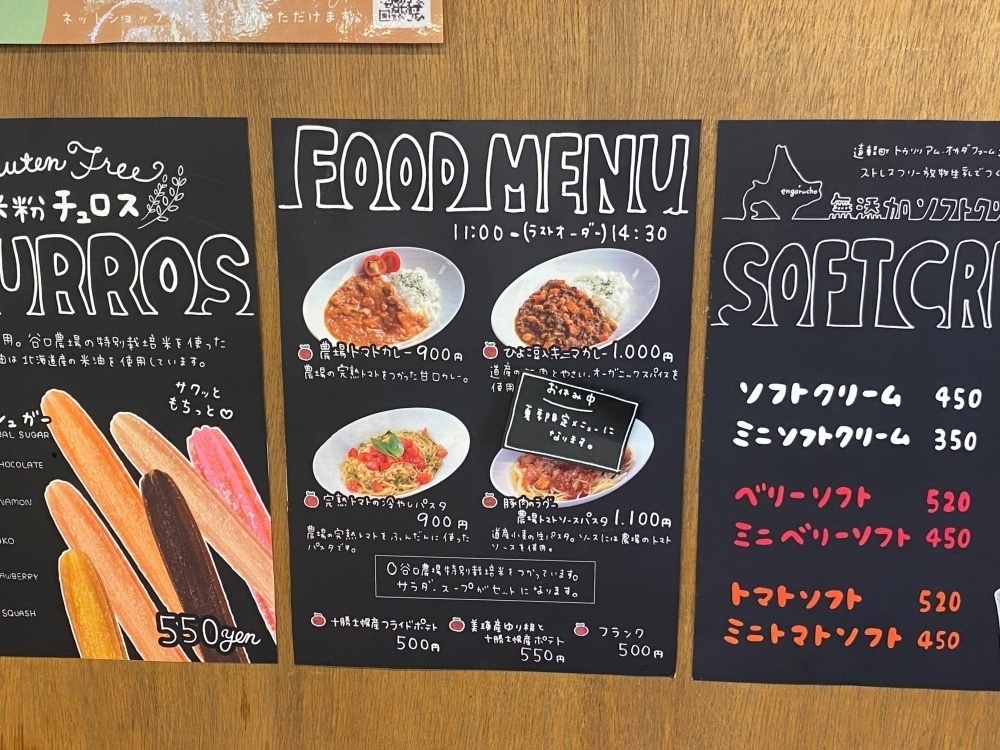 ネットショップからもご
いただけます。
Gluten Free
米粉 チュロス
URROS
用。谷口農場の特別栽培米を使った
油は北海道産の米油を使用しています。
サクッと
もちっと♡
シュガー
SUGAR
CHOCOLATE
NNAMON
NAKO
RAWBERRY
SQUASH
550yen
FOOD MENU
11:00-(ラストオーダー)14:30
農場トマトカレー 900円
農場の完熟トマトをつかった甘口カレー。
ひよこ豆入キーマカレー 1.000円
道産の 肉とやさい、オーガニックスパイスを
使用
お休み中
夏季限定メニューに
なります。
完熟トマトの冷やしパスタ
900円
農場の完熟トマトをふんだんに使った
パスタです。
豚肉のラグー
農場トマトソースパスタ 1.100円
道産小麦の生パスタ。ソースには農場のトマト
ソースを使用。
○谷口農場特別栽培米をつかっています。
サラダ・スープがセットになります。
十勝士幌産フライドポテト
500円
美瑛産ゆり根と
十勝士幌産ポテト
550円
フランク
500円
遠軽町 トゥリリアム・オカダファーム
ストレスフリー放牧生乳でつく
engarucho
無添加ソフトクリ
SOFTCR
ソフトクリーム 450
ミニソフトクリーム 350
ベリーソフト 520
ミニベリーソフト 450
トマトソフト 520
ミニトマトソフト 450